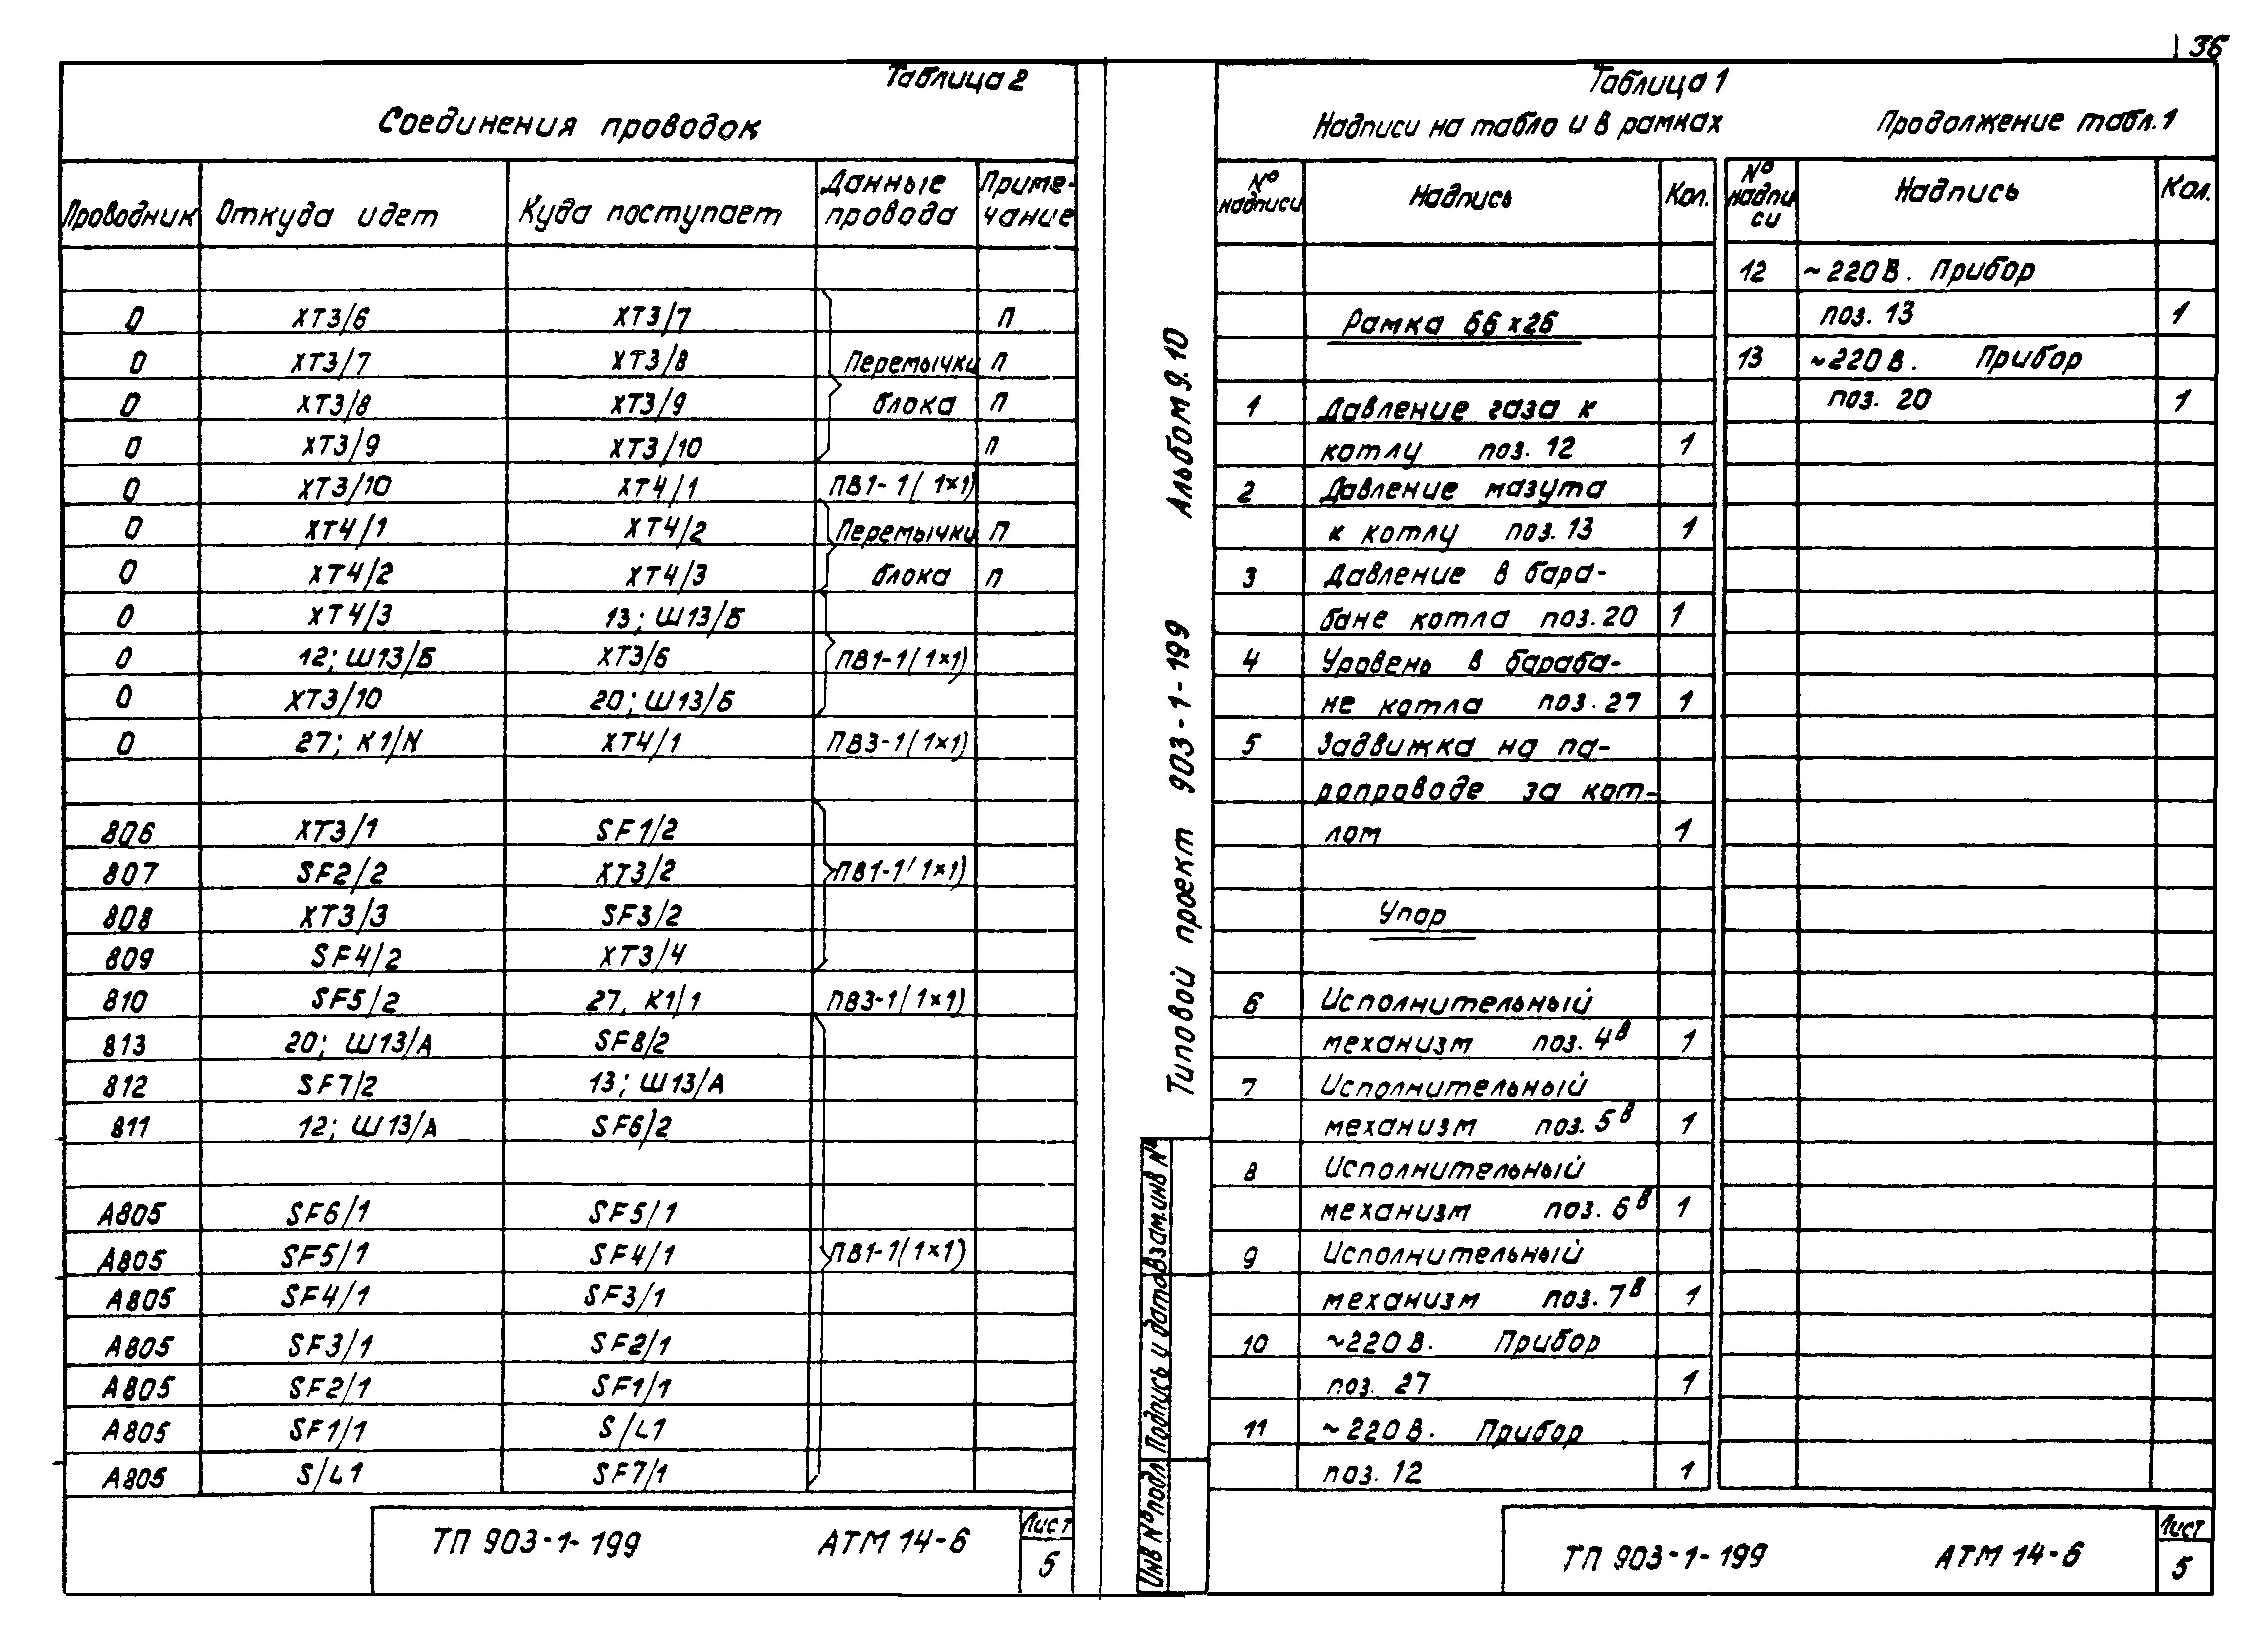 36
Таблица 2
Соединения проводок
Проводник Откуда идет Куда поступает Данные провода Приме-чание
0 ХТ3/6 ХТ3/7 П
0 ХТ3/7 ХТ3/8 Перемычки П
0 ХТ3/8 ХТ3/9 блока П
0 ХТ3/9 ХТ3/10 П
0 ХТ3/10 ХТ4/1 ПВ1-1(1×1)
0 ХТ4/1 ХТ4/2 Перемычки П
0 ХТ4/2 ХТ4/3 блока П
0 ХТ4/3 13; Ш13/Б
0 12; Ш13/Б ХТ3/6 ПВ1-1(1×1)
0 ХТ3/10 20; Ш13/Б
0 27; К1/N ХТ4/1 ПВ3-1(1×1)
806 ХТ3/1 SF1/2
807 SF2/2 ХТ3/2 ПВ1-1(1×1)
808 ХТ3/3 SF3/2
809 SF4/2 ХТ3/4
810 SF5/2 27, К1/1 ПВ3-1(1×1)
813 20; Ш13/А SF8/2
812 SF7/2 13; Ш13/А
811 12; Ш13/А SF6/2
А805 SF6/1 SF5/1
А805 SF5/1 SF4/1 ПВ1-1(1×1)
А805 SF4/1 SF3/1
А805 SF3/1 SF2/1
А805 SF2/1 SF1/1
А805 SF1/1 S/L1
А805 S/L1 SF7/1
ТП 903-1-199 АТМ 14-6 Лист 5
Типовой проект 903-1-199 Альбом 9.10
Инв № подл. Подпись и дата Взам.инв №
Таблица 1
Надписи на табло и в рамках
№ надписи Надпись Кол.
Рамка 66×26
1 Давление газа к
котлу поз. 12 1
2 Давление мазута
к котлу поз. 13 1
3 Давление в бара-
бане котла поз. 20 1
4 Уровень в бараба-
не котла поз. 27 1
5 Задвижка на па-
ропроводе за кот-
лом 1
Упор
6 Исполнительный
механизм поз. 4в 1
7 Исполнительный
механизм поз. 5в 1
8 Исполнительный
механизм поз. 6в 1
9 Исполнительный
механизм поз. 7в 1
10 ~220 В. Прибор
поз. 27 1
11 ~220 В. Прибор
поз. 12 1
Продолжение табл. 1
№ надпи си Надпись Кол.
12 ~220 В. Прибор
поз. 13 1
13 ~220 В. Прибор
поз. 20 1
ТП 903-1-199 АТМ 14-6 Лист 5